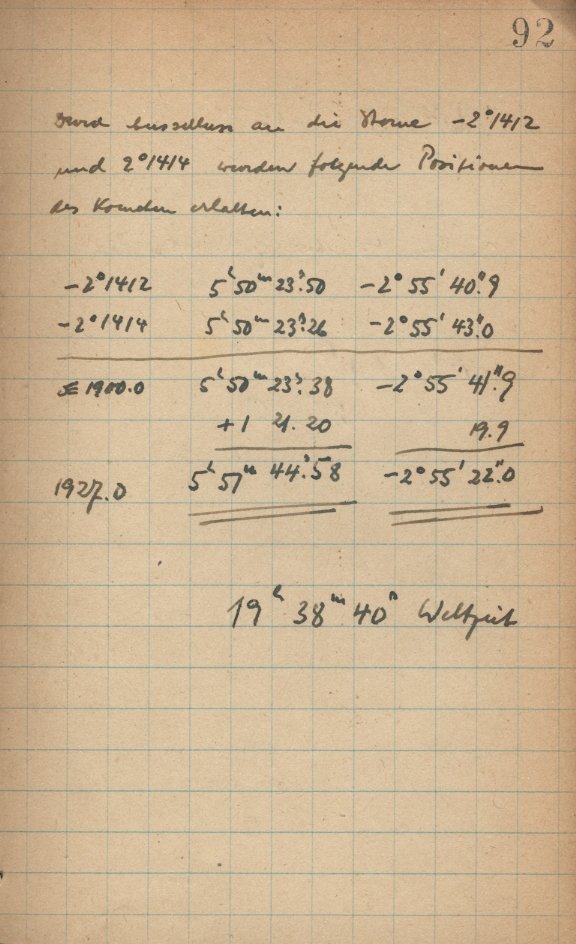 92
Durch Anschluss an die Sterne -2°1412
und 2°1414 wurden folgende Positionen
des Kometen erhalten:
-2°1412 5ʰ50ᵐ23ˢ.50 -2°55'40".9
-2°1414 5ʰ50ᵐ23ˢ.26 -2°55'43".0
1900.0 5ʰ50ᵐ23ˢ.38 -2°55'41".9
+1 21.20 19.9
1927.0 5ʰ51ᵐ44ˢ.58 -2°55'22".0
19ʰ38ᵐ40ˢ Weltzeit